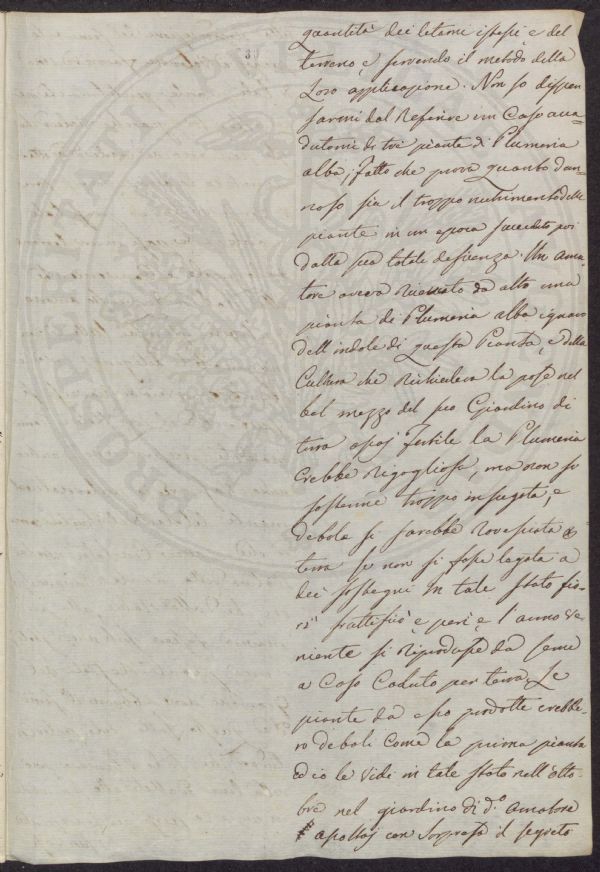 quantità dei letami istessi e del
terreno, e servendo il metodo della
Loro applicazione. Non so dispen=
sarmi dal Referire un Caso acca=
dutomi di tre piante di Plumeria
alba, fatto che prova quanto dan=
noso sia il troppo nutrimento delle
piante in un epoca succeduto poi
dalla sua totale deficenza. Un ama=
tore aveva ricevuto da altro una
pianta di Plumeria alba ignaro
dell'indole di questa Pianta, e della
Cultura che Richiedeva la pose nel
bel mezzo del suo Giardino di
terra assai fertile la Plumeria
Crebbe Rigogliosa, ma non si
sostenne troppo in seguito, e
debole si sarebbe Rovesciata a
terra se non si fosse legata a
dei sostegni in tale stato fio=
rì fruttificò e perì e l'anno ve=
niente si riprodusse da seme
a Caso Caduto per terra. Le
piante da esso prodotte crebbe=
ro deboli Come la prima pianta
ed io le vidi in tale stato nell'otto=
bre nel giardino di d.o amatore
apposi con sorpresa il segreto
PROSPERITATI PUBLICAE